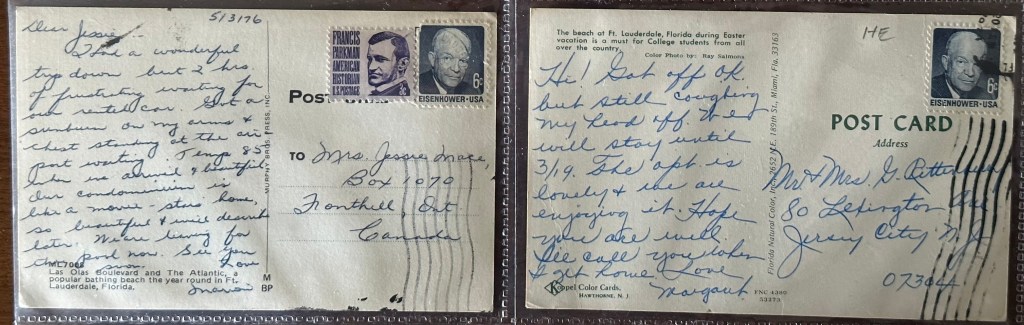 5/3/76
Dear Jessie -
I had a wonderful
trip down but 2 hrs
of frustrating waiting for
our rented car. Got a
sunburn on my arms &
chest standing at the air
port waiting. Temp 85°
when we arrived & beautiful.
Our condominium is
like a movie-stars home,
so beautiful & will describe
later. We are leaving for
the pool now. See you
soon. Love
Marion
Las Olas Boulevard and The Atlantic, a
popular bathing beach the year round in Ft.
Lauderdale, Florida.
M
BP
MURPHY BROS. PRESS, INC.
FRANCIS
PARKMAN
AMERICAN
HISTORIAN
U.S. POSTAGE
6c
EISENHOWER·USA
Post
TO Mrs. Jessie Mace,
Box 1070
Fonthill, Ont
Canada
The beach at Ft. Lauderdale, Florida during Easter
vacation is a must for College students from all
over the country.
Color Photo by: Ray Salmons
HE
Hi! Got off OK
but still coughing
my head off. Wed
will stay until
3/19. The apt is
lovely & we are
enjoying it. Hope
you are well.
I'll call you when
I get home. Love
Margaret
Koppel Color Cards.
HAWTHORNE, N. J.
FNC 4390
53373
Florida Natural Color, Inc. 2652 N.E. 189th St., Miami, Fla. 33163
6c
EISENHOWER·USA
POST CARD
Address
Mr & Mrs. G.
80 Lexington Ave
Jersey City N.J.
07304